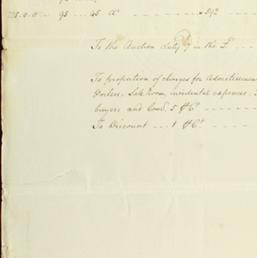 95 45
To the Auction duty 7 in the £
To proportion of charges for Advertisements
Porters, Sale room, incidental expences
buyers and Comd. 5 ₱ Ct
To Discount ... 1 ₱ Ct